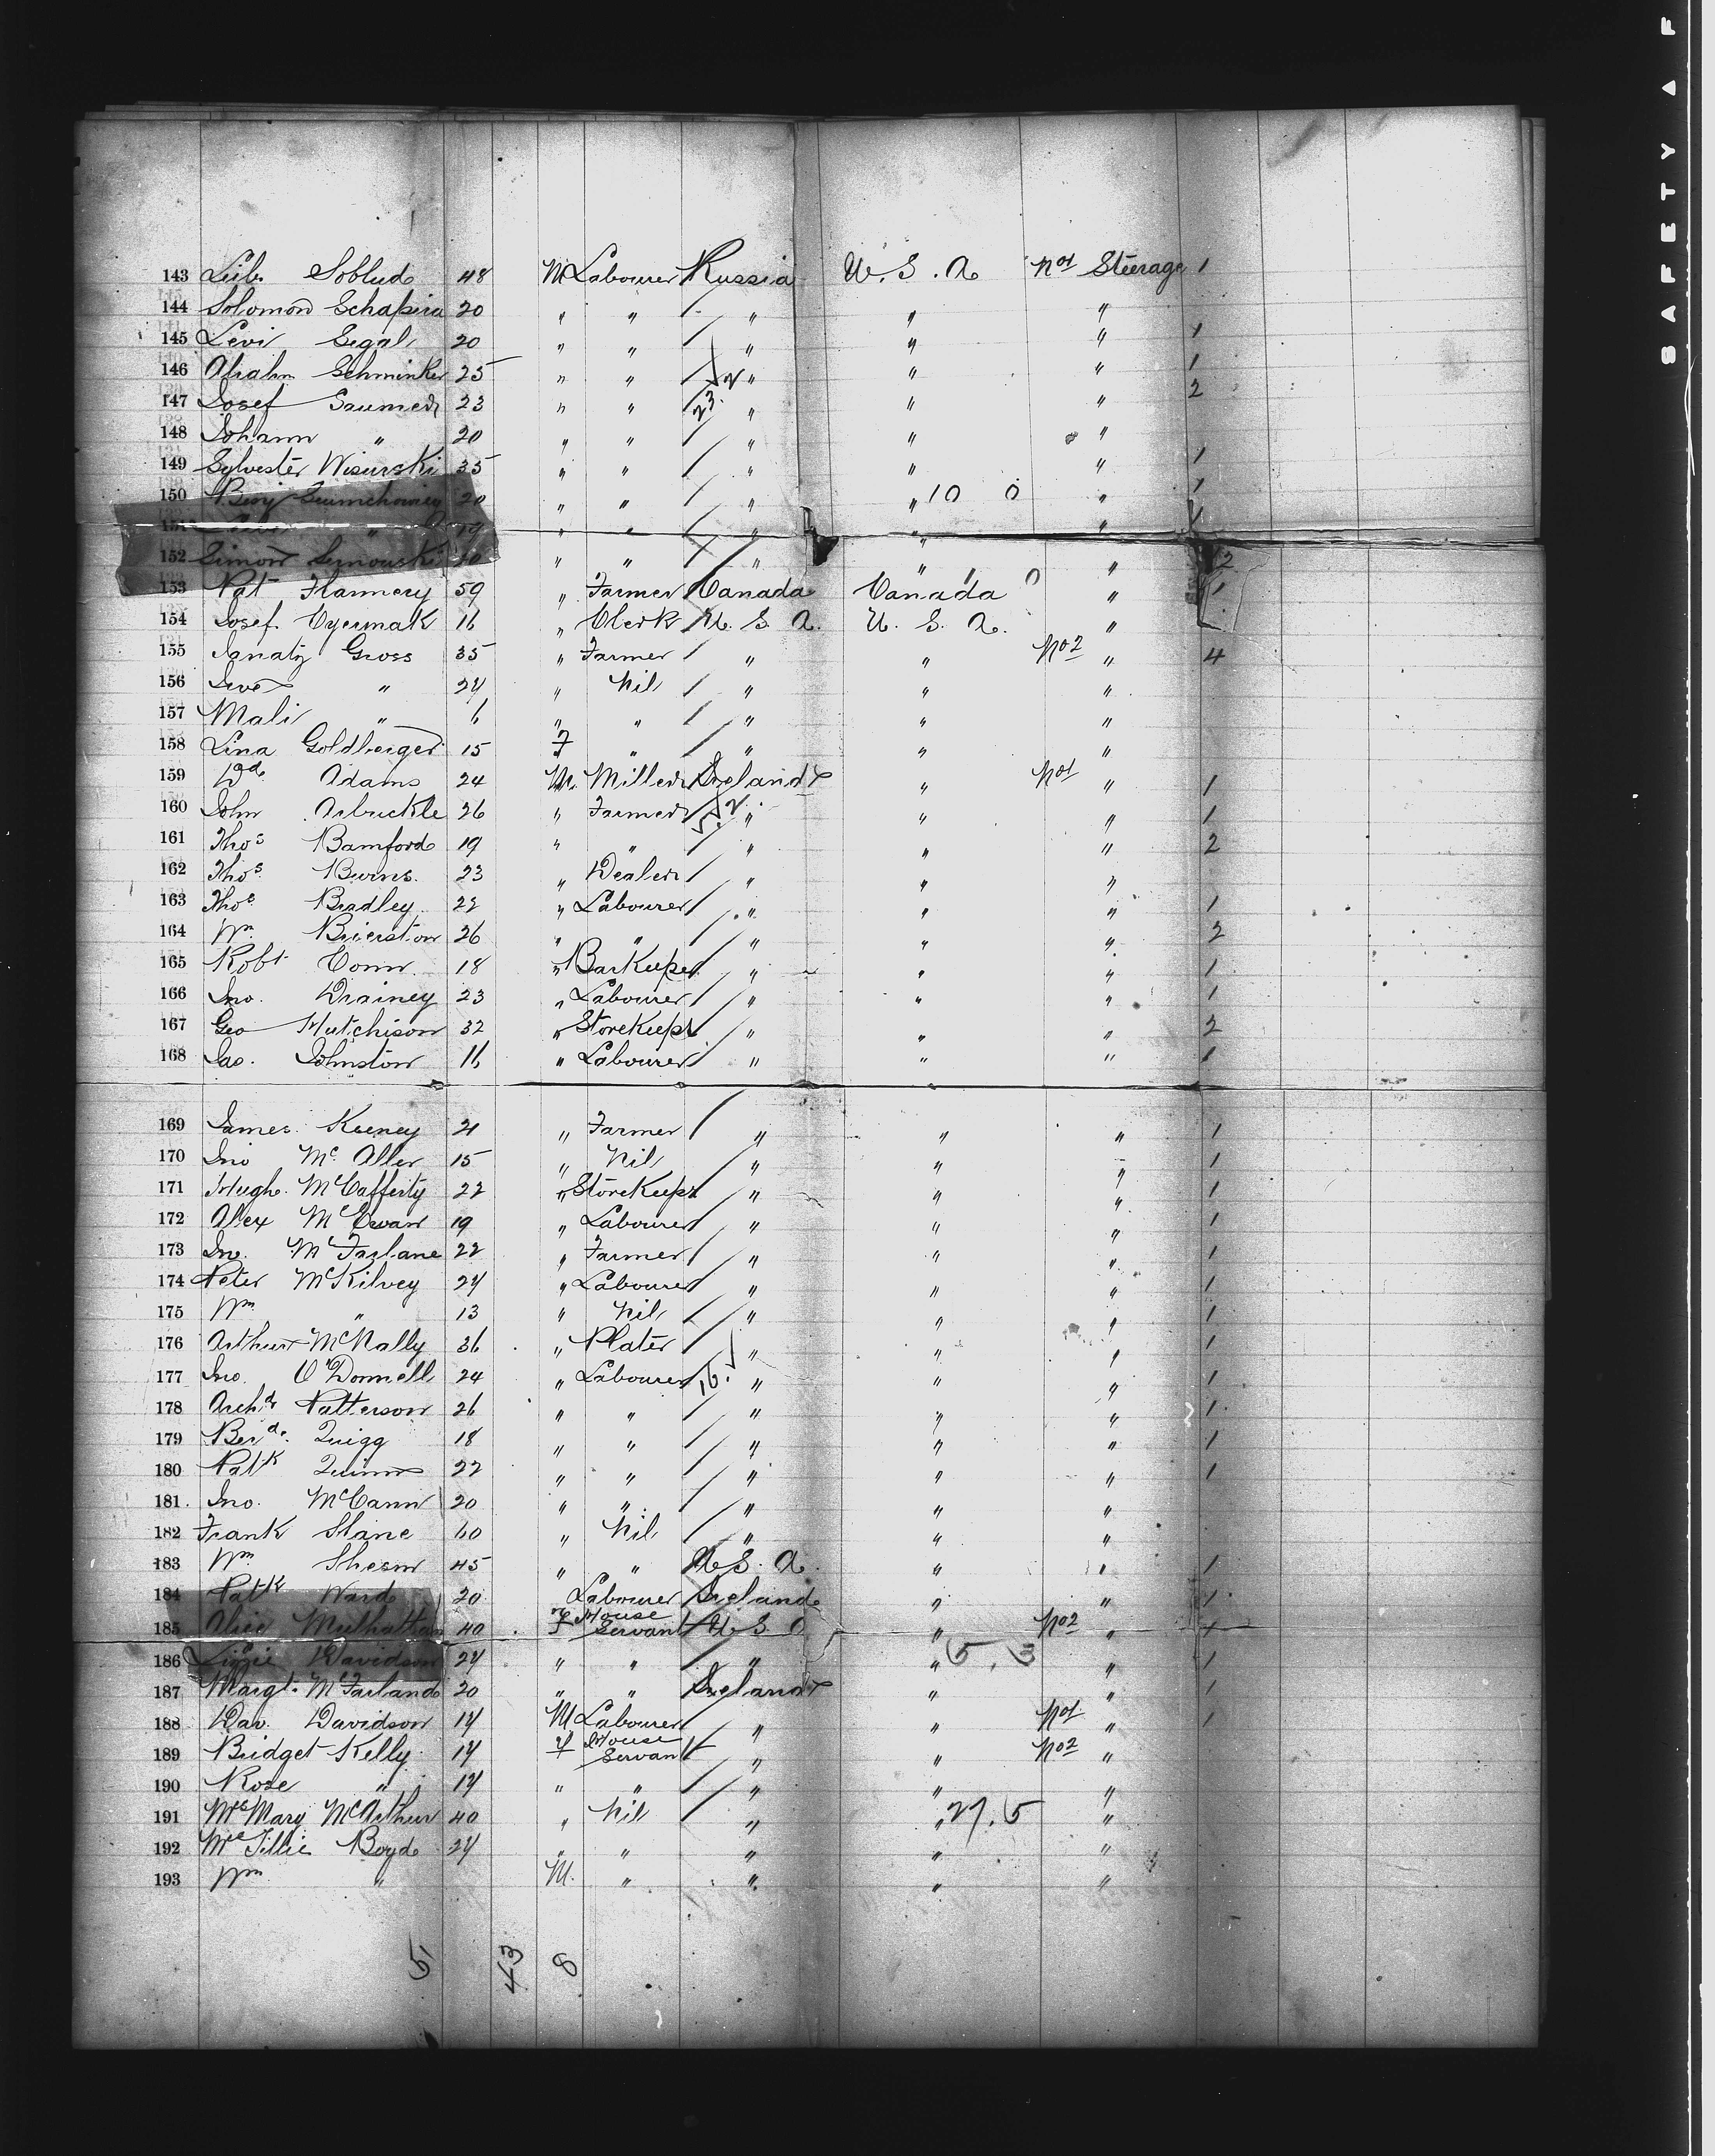 SAFETY F
143 Leib Soblud 48 M Labourer Russia U.S.A No1 Steerage 1
144 Solomon Schapira 20 " " " " "
145 Levi Segal 20 " " " " " 1
146 Abrahm Schminker 25 " " " " " 1
147 Josef 23 " " " " " 2
148 Johann " 20 " " " " "
149 Sylvester Wisurski 35 " " " " " 1
150 20 " " " " 10 0 " 1
151 " 19 " " " " " 1
152 Simon 20 " " " " " 2
153 Pat Flannery 59 " Farmer Canada Canada " 1
154 Josef Czermak 16 " Clerk U.S.A. U.S.A. "
155 Ignatz Gross 35 " Farmer " " No2 " 4
156 " 24 " Nil " " "
157 Mali " 6 " " " " "
158 Lina Goldberger 15 F " " " "
159 Wd. Adams 24 M. Miller Ireland " No1 " 1
160 John Arbuckle 26 " Farmer " " " 1
161 Thos Bamford 19 " " " " " 2
162 Thos. Burns. 23 " Dealer " " "
163 Thos. Bradley 22 " Labourer " " " 1
164 Wm Brierston 26 " " " " " 2
165 Robt Conn. 18 " Barkeeper " " " 1
166 Jno. Drainey 23 " Labourer " " " 1
167 Geo Hutchison 32 " Storekeepr " " " 2
168 Jas. Johnston 16 " Labourer " " " 1
169 James Keeney 21 " Farmer " " " 1
170 Jno Mc Aller 15 " Nil " " " 1
171 Hugh McCafferty 22 " Storekeepr " " " 1
172 Alex McEwan 19 " Labourer " " " 1
173 Jno. McFarlane 22 " Farmer " " " 1
174 Peter McKilvey 24 " Labourer " " " 1
175 Wm " 13 " Nil " " " 1
176 Arthur McNally 36 " Plater " " " 1
177 Jno. O'Donnell 24 " Labourer 16. " " " 1
178 Archd Patterson 26 " " " " " 1
179 Berd. Quigg 18 " " " " " 1
180 Patk Quinn 22 " " " " " 1
181. Jno. McCann 20 " " " " "
182 Frank Slane 60 " Nil " " "
183 Wm Shearn 45 " " U.S.A. " " 1
184 Patk Ward 20 Labourer Ireland " " 1
185 Alice 40 F House Servant U.S.A " No2 " 1
186 Lizzie Davidson 24 " " " " 5.3 " 1
187 Margt. McFarland 20 " " Ireland " " 1
188 Dav. Davidson 14 M Labourer " " No1 " 1
189 Bridget Kelly 14 F House Servant " " No2 "
190 Rose " 14 " " " " "
191 Mrs Mary McArthur 40 " Nil " " 27.5 "
192 Mrs Tillie Boyd 24 " " " " "
193 Wm " M. " " " "
5 43 8